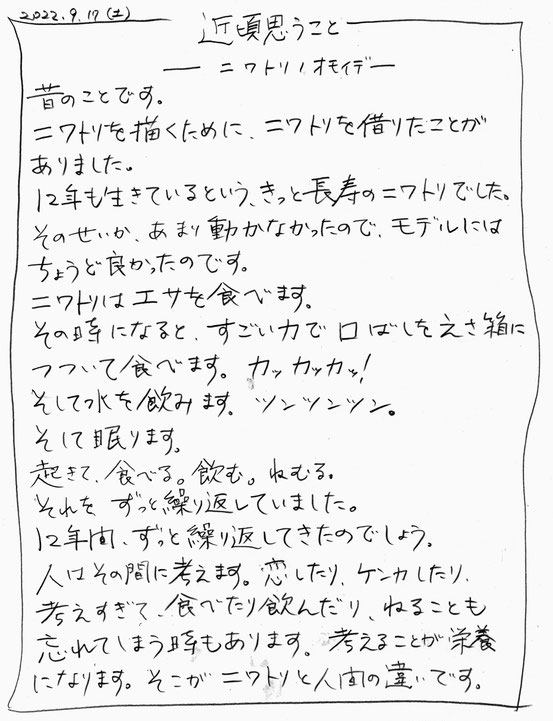 2022.9.17(土)
近頃思うこと
— ニワトリノオモイデ —
昔のことです。
ニワトリを描くために、ニワトリを借りたことが
ありました。
12年も生きているという、きっと長寿のニワトリでした。
そのせいか、あまり動かなかったので、モデルには
ちょうど良かったのです。
ニワトリはエサを食べます。
その時になると、すごい力で口ばしをえさ箱に
つついて食べます。カッカッカッ!
そして水を飲みます。ツンツンツン。
そして眠ります。
起きて、食べる。飲む。ねむる。
それをずっと繰り返していました。
12年間、ずっと繰り返してきたのでしょう。
人はその間に考えます。恋したり、ケンカしたり、
考えすぎて、食べたり飲んだり、ねることも
忘れてしまう時もあります。考えることが栄養
になります。そこがニワトリと人間の違いです。